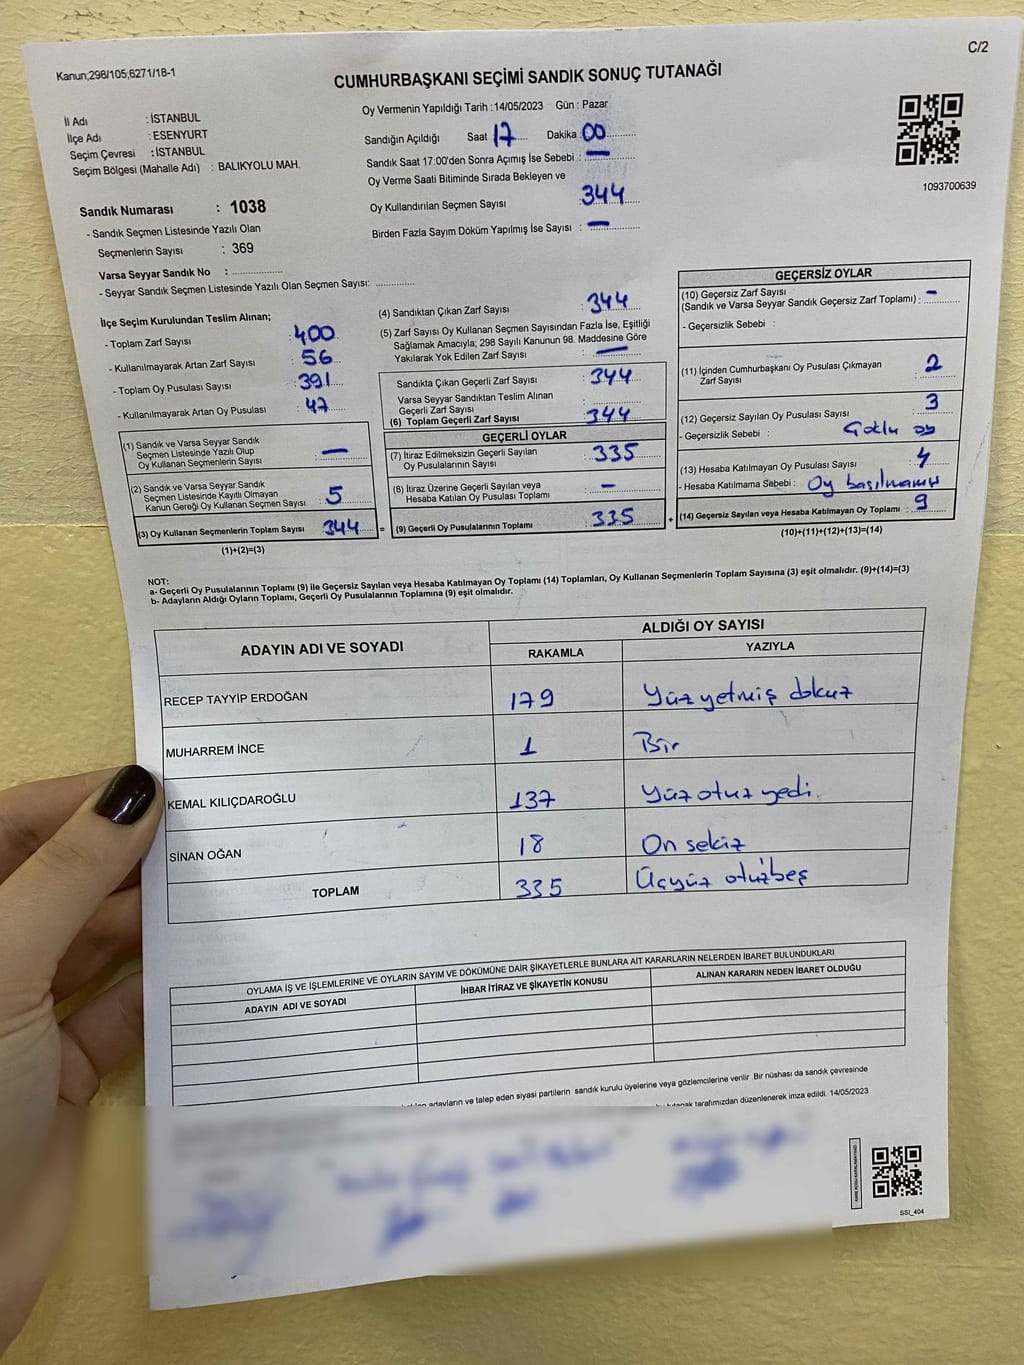 C/2
Kanun;298/105;6271/18-1
CUMHURBAŞKANI SEÇİMİ SANDIK SONUÇ TUTANAĞI
İl Adı : İSTANBUL
İlçe Adı : ESENYURT
Seçim Çevresi : İSTANBUL
Seçim Bölgesi (Mahalle Adı) : BALIKYOLU MAH.
Oy Vermenin Yapıldığı Tarih : 14/05/2023 Gün : Pazar
Sandığın Açıldığı Saat 17 Dakika 00
Sandık Saat 17:00'den Sonra Açımış İse Sebebi : —
Oy Verme Saati Bitiminde Sırada Bekleyen ve
Oy Kullandırılan Seçmen Sayısı : 344
Birden Fazla Sayım Döküm Yapılmış İse Sayısı : —
1093700639
Sandık Numarası : 1038
- Sandık Seçmen Listesinde Yazılı Olan
Seçmenlerin Sayısı : 369
Varsa Seyyar Sandık No : ................
- Seyyar Sandık Seçmen Listesinde Yazılı Olan Seçmen Sayısı: ............
İlçe Seçim Kurulundan Teslim Alınan;
- Toplam Zarf Sayısı : 400
- Kullanılmayarak Artan Zarf Sayısı : 56
- Toplam Oy Pusulası Sayısı : 391
- Kullanılmayarak Artan Oy Pusulası : 47
(1) Sandık ve Varsa Seyyar Sandık
Seçmen Listesinde Yazılı Olup
Oy Kullanan Seçmenlerin Sayısı : —
(2) Sandık ve Varsa Seyyar Sandık
Seçmen Listesinde Kayıtlı Olmayan
Kanun Gereği Oy Kullanan Seçmen Sayısı : 5
(3) Oy Kullanan Seçmenlerin Toplam Sayısı : 344
(1)+(2)=(3)
(4) Sandıktan Çıkan Zarf Sayısı : 344
(5) Zarf Sayısı Oy Kullanan Seçmen Sayısından Fazla İse, Eşitliği
Sağlamak Amacıyla; 298 Sayılı Kanunun 98. Maddesine Göre
Yakılarak Yok Edilen Zarf Sayısı : —
Sandıkta Çıkan Geçerli Zarf Sayısı : 344
Varsa Seyyar Sandıktan Teslim Alınan
Geçerli Zarf Sayısı :
(6) Toplam Geçerli Zarf Sayısı : 344
GEÇERLİ OYLAR
(7) İtiraz Edilmeksizin Geçerli Sayılan
Oy Pusulalarının Sayısı : 335
(8) İtiraz Üzerine Geçerli Sayılan veya
Hesaba Katılan Oy Pusulası Toplamı : —
= (9) Geçerli Oy Pusulalarının Toplamı : 335 +
GEÇERSİZ OYLAR
(10) Geçersiz Zarf Sayısı
(Sandık ve Varsa Seyyar Sandık Geçersiz Zarf Toplamı) : —
- Geçersizlik Sebebi :
(11) İçinden Cumhurbaşkanı Oy Pusulası Çıkmayan
Zarf Sayısı : 2
(12) Geçersiz Sayılan Oy Pusulası Sayısı : 3
- Geçersizlik Sebebi : Çoklu oy
(13) Hesaba Katılmayan Oy Pusulası Sayısı : 4
- Hesaba Katılmama Sebebi : Oy basılmamış
(14) Geçersiz Sayılan veya Hesaba Katılmayan Oy Toplamı : 9
(10)+(11)+(12)+(13)=(14)
NOT:
a- Geçerli Oy Pusulalarının Toplamı (9) ile Geçersiz Sayılan veya Hesaba Katılmayan Oy Toplamı (14) Toplamları, Oy Kullanan Seçmenlerin Toplam Sayısına (3) eşit olmalıdır. (9)+(14)=(3)
b- Adayların Aldığı Oyların Toplamı, Geçerli Oy Pusulalarının Toplamına (9) eşit olmalıdır.
ADAYIN ADI VE SOYADI
ALDIĞI OY SAYISI
RAKAMLA YAZIYLA
RECEP TAYYİP ERDOĞAN 179 Yüz yetmiş dokuz
MUHARREM İNCE 1 Bir
KEMAL KILIÇDAROĞLU 137 Yüz otuz yedi
SİNAN OĞAN 18 On sekiz
TOPLAM 335 Üçyüz otuzbeş
OYLAMA İŞ VE İŞLEMLERİNE VE OYLARIN SAYIM VE DÖKÜMÜNE DAİR ŞİKAYETLERLE BUNLARA AİT KARARLARIN NELERDEN İBARET BULUNDUKLARI
ADAYIN ADI VE SOYADI İHBAR İTİRAZ VE ŞİKAYETİN KONUSU ALINAN KARARIN NEDEN İBARET OLDUĞU
adayların ve talep eden siyasi partilerin sandık kurulu üyelerine veya gözlemcilerine verilir .Bir nüshası da sandık çevresinde
tutanak tarafımızdan düzenlenerek imza edildi. 14/05/2023
SSI_404